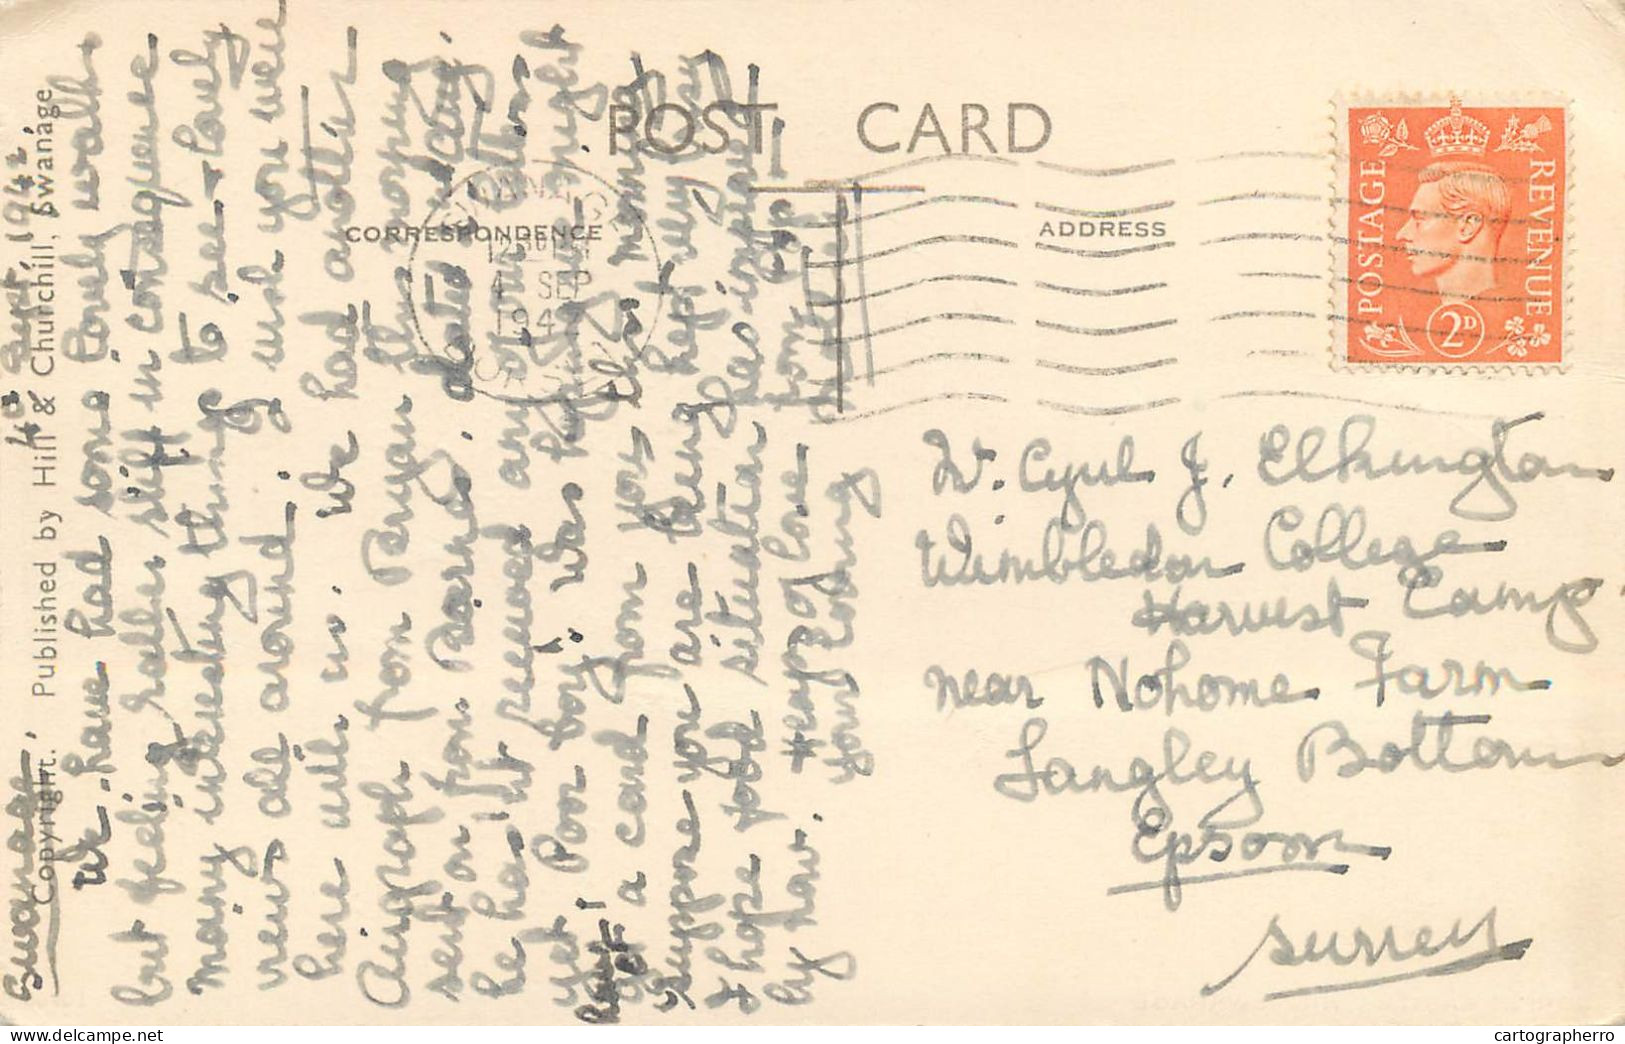 POST CARD
CORRESPONDENCE
ADDRESS
Copyright. Published by Hill & Churchill, Swanage
SWANAGE
4 SEP
194
DORSET
POSTAGE
REVENUE
2D
Swanage. 4th Sept. 1942.
We have had some lovely walks
but feeling rather stiff in consequence
many interesting things to see & lovely
views all around. I wish you were
here with us. We had another
Airgraph from Bryan this morning
sent on from Barnes. dated
he hasn't received any of our letters
yet. Poor boy. Was hoping we might
have! get a card from you this morning
Suppose you are being kept very busy
& hope food situation has improved
by now. Heaps of love from
your loving
Mr. Cyril J. Elkington
Wimbledon College
Harvest Camp.
near Nohome Farm
Langley Bottom
Epsom
Surrey
cartographerro